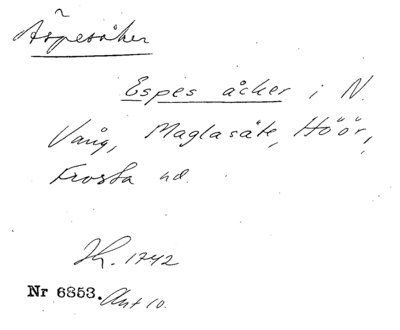 Äspesåker
Espes åcker i N.
Vång, Maglasäte, Höör,
Frosta hd.
Jh. 1742
Nr 6853. Akt 10.